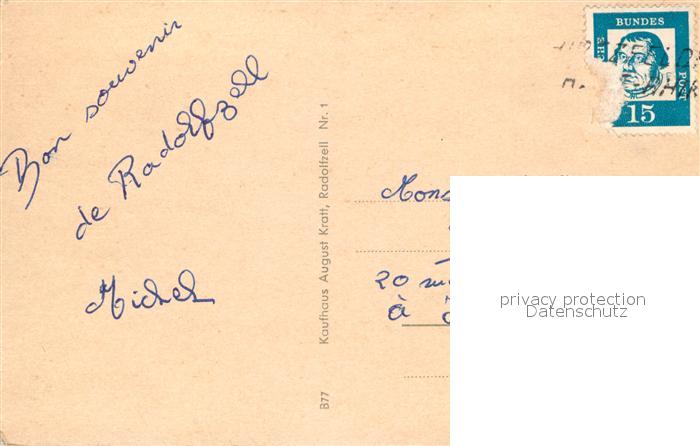 Bon souvenir
de Radolfzell
Michel
B77 Kaufhaus August Kratt, Radolfzell Nr. 1
BUNDES
POST
15
Mons
20
à
privacy protection
Datenschutz